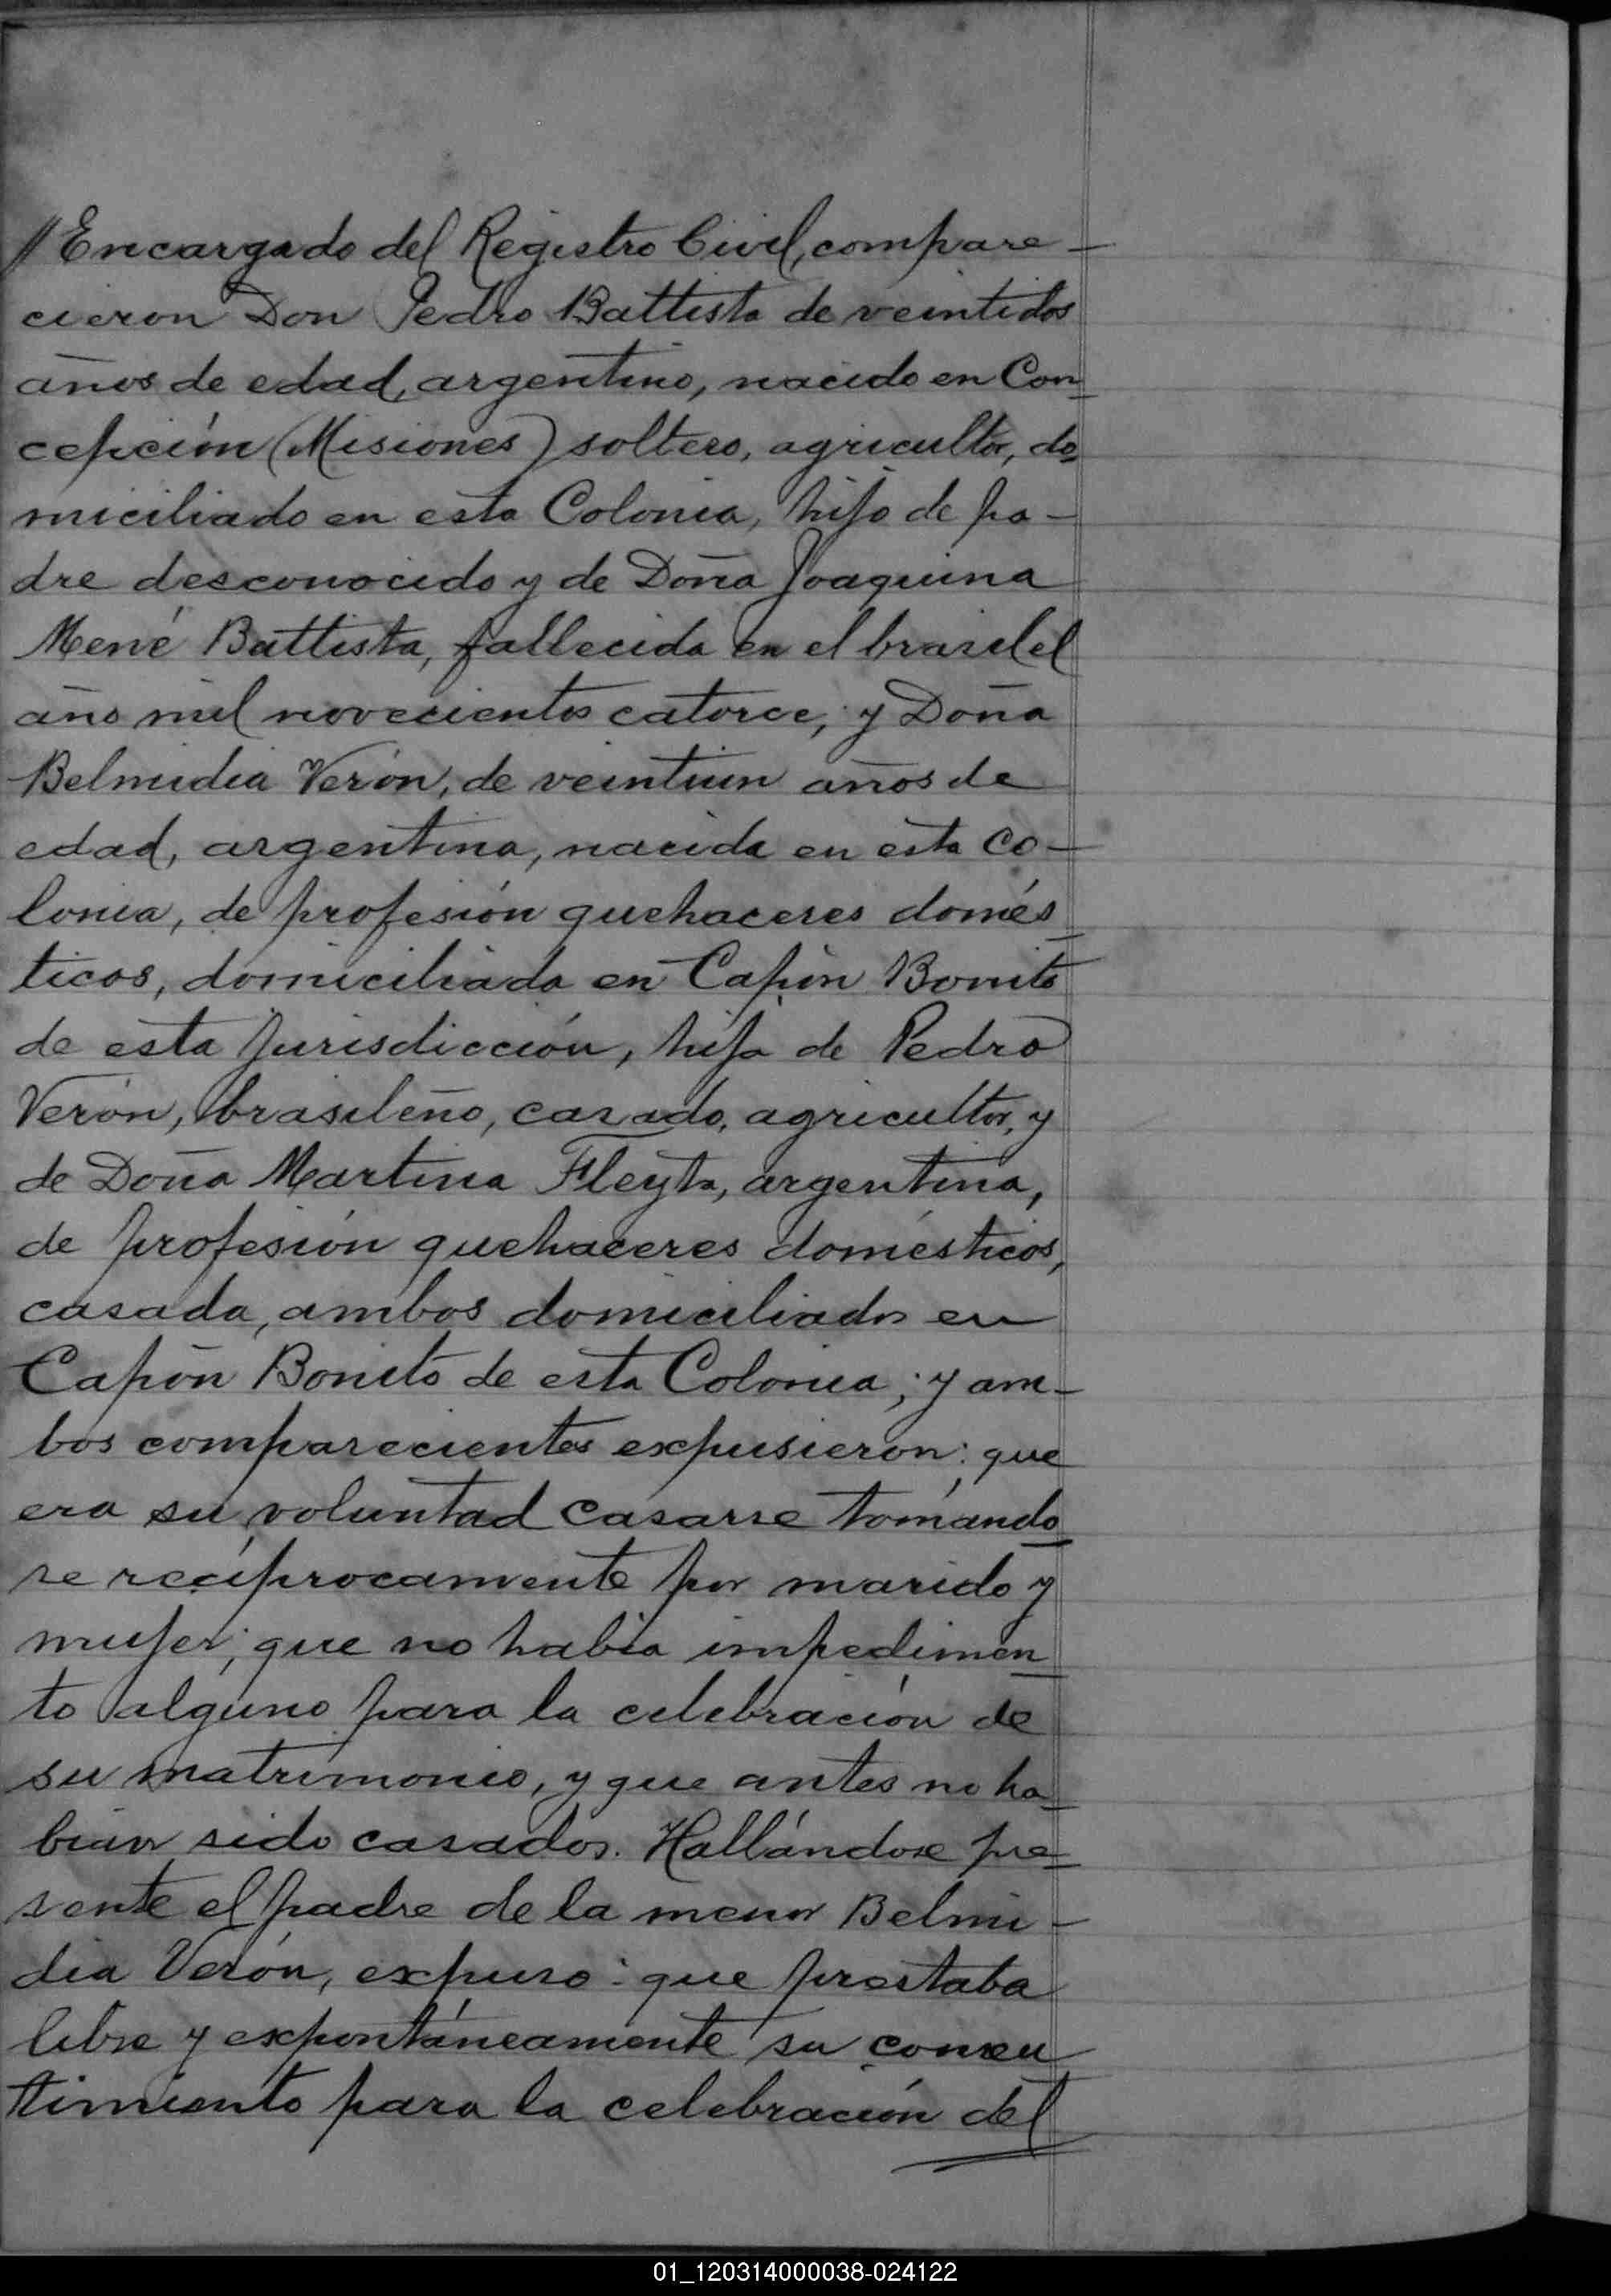 // Encargado del Registro Civil, compare-
cieron Don Pedro Battista de veintidos
años de edad, argentino, nacido en Con-
cepción (Misiones) soltero, agricultor, do-
miciliado en esta Colonia, hijo de pa-
dre desconocido y de Doña Joaquina
Mené Battista, fallecida en el brasil el
año mil novecientos catorce; y Doña
Belmidia Verón, de veintiun años de
edad, argentina, nacida en esta Co-
lonia, de profesión quehaceres domés-
ticos, domiciliada en Capón Bonito
de esta Jurisdicción, hija de Pedro
Verón, brasileño, casado, agricultor, y
de Doña Martina Fleyta, argentina,
de profesión quehaceres domésticos,
casada, ambos domiciliados en
Capón Bonito de esta Colonia; y am-
bos comparecientes expusieron: que
era su voluntad casarse tomándo-
se recíprocamente por marido y
mujer; que no había impedimen-
to alguno para la celebración de
su matrimonio, y que antes no ha-
bían sido casados. Hallándose pre-
sente el padre de la menor Belmi-
dia Verón, expuso: que prestaba
libre y expontáneamente su consen-
timiento para la celebración del
01_120314000038-024122